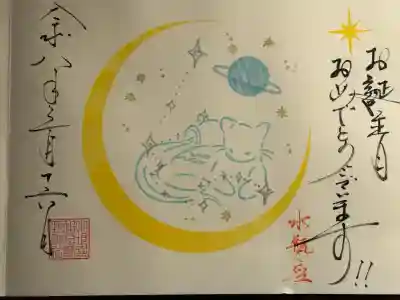 お誕生月
おめでとうございます!!
水瓶座
令和八年二月十六日